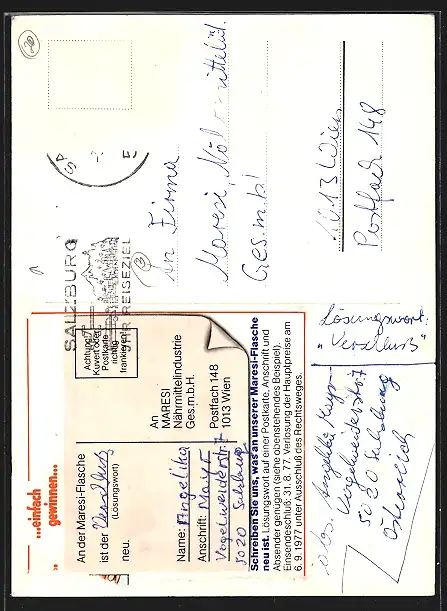 ...einfach
gewinnen...
An der Maresi-Flasche
ist der Verschluß
(Lösungswort)
neu.
Name: Angelika
Anschrift: Mayr
Vogelweiderstr. 7
5020 Salzburg
Achtung!
Kuvert oder
Postkarte
richtig
frankieren!
An
MARESI
Nährmittelindustrie
Ges.m.b.H.
Postfach 148
1013 Wien
Schreiben Sie uns, was an unserer Maresi-Flasche
neu ist. Lösungswort auf einer Postkarte, Anschrift und
Absender genügen (siehe obenstehendes Beispiel).
Einsendeschluß: 31. 8. 77. Verlosung der Hauptpreise am
6. 9. 1977 unter Ausschluß des Rechtsweges.
Lösungswort:
"Verschluß"
Abs. Angelika Mayr
Vogelweiderstr. 7
5020 Salzburg
Österreich
SALZBURG
IHR REISEZIEL
An Firma
Maresi, Nährmittelind.
Ges.m.b.H
1013 Wien
Postfach 148